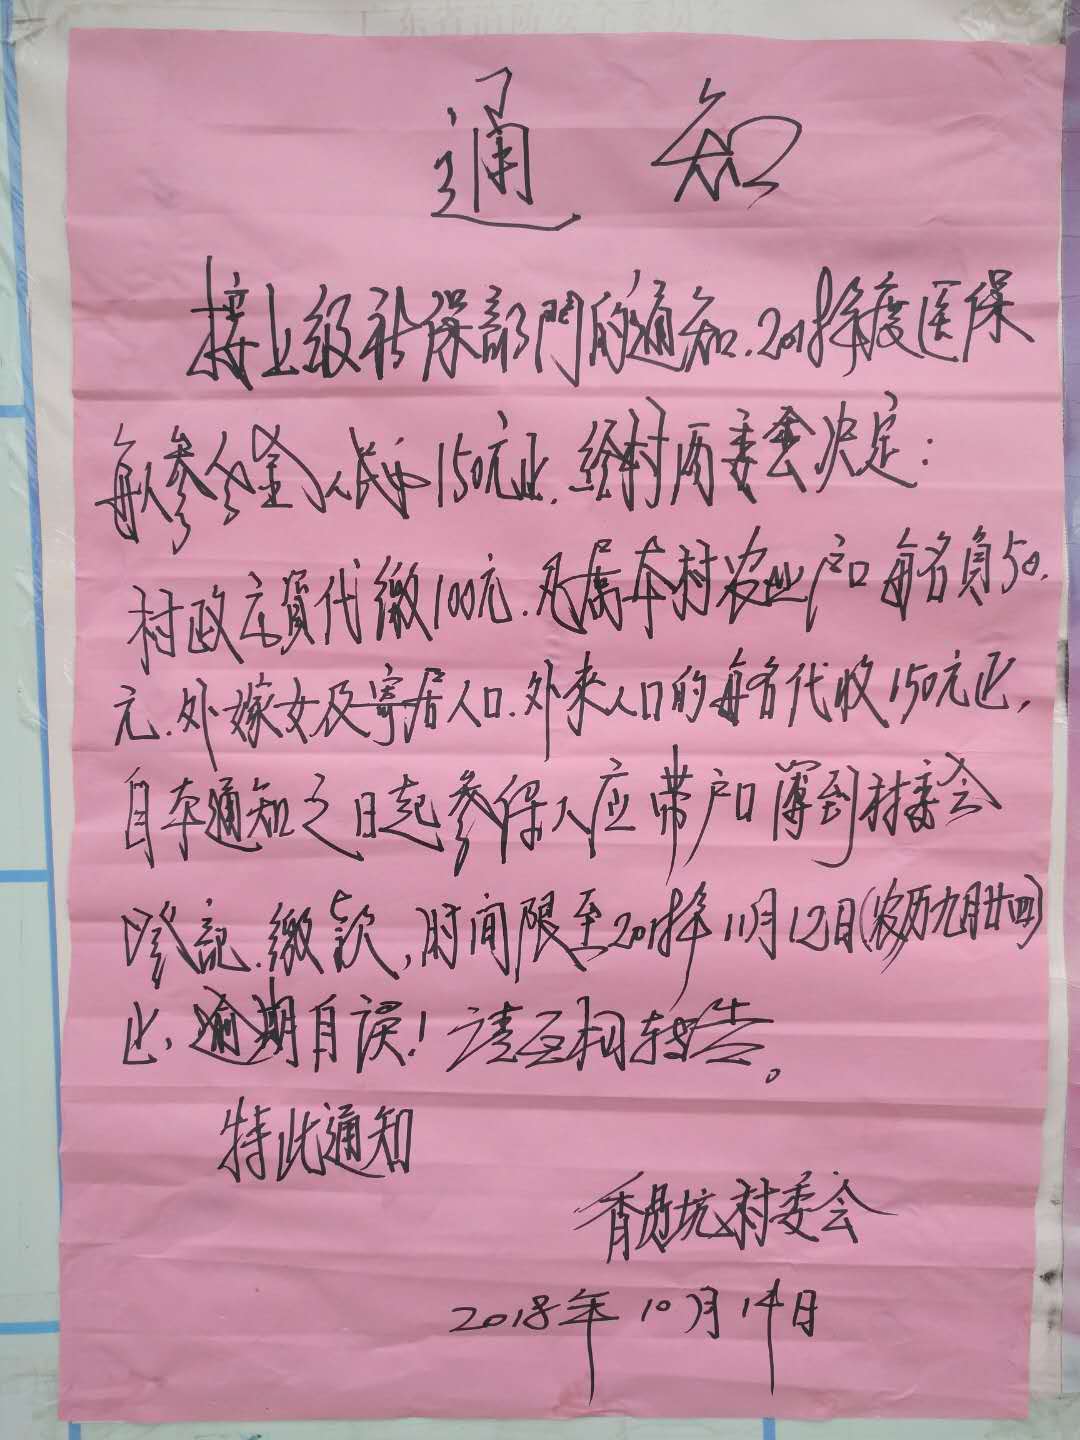 通知
接上级社保部門的通知.2018年度医保
每人参合金人民币150元正.经村两委会决定：
村政府负责代缴100元.凡属本村农业户口每名負50.
元.外嫁女及寄居人口.外来人口的每名代收150元正,
自本通知之日起参保人应带户口簿到村委会
登記.缴款,时间限至2018年11月12日(农历九月廿四)
止、逾期自误!请互相转告。
特此通知
香坑村委会
2018年10月14日